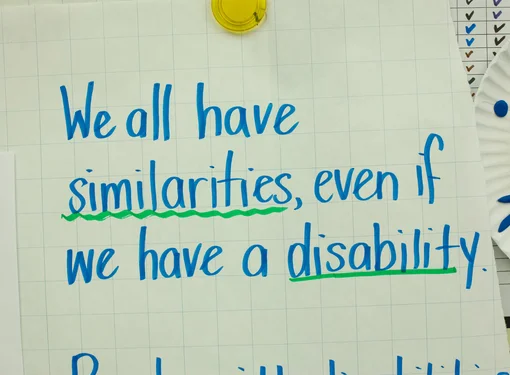 We all have
similarities, even if
we have a disability.